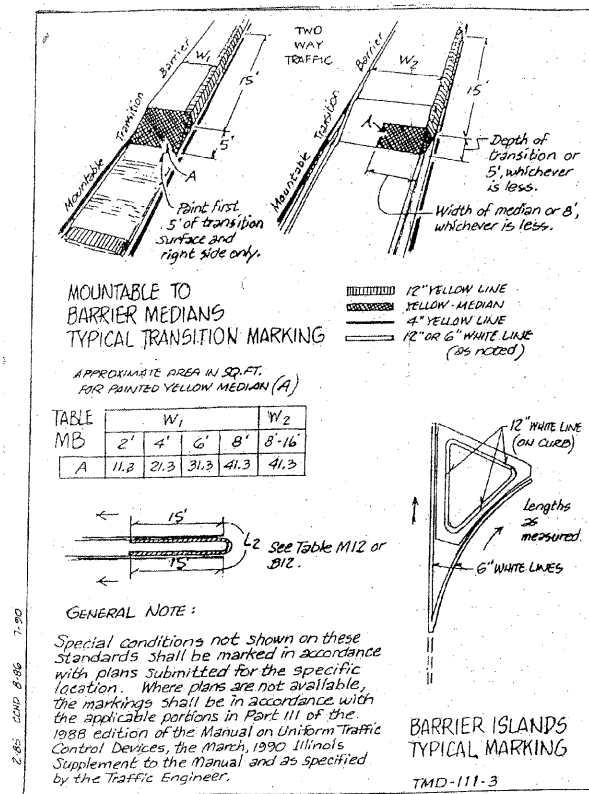 TWO
WAY
TRAFFIC
Barrier
W1
15'
Transition
5'
Mountable
A
Paint first
5' of transition
surface and
right side only.
Barrier
W2
15'
A
Transition
Mountable
Depth of
transition or
5', whichever
is less.
Width of median or 8',
whichever is less.
MOUNTABLE TO
BARRIER MEDIANS
TYPICAL TRANSITION MARKING
12" YELLOW LINE
YELLOW - MEDIAN
4" YELLOW LINE
12" OR 6" WHITE LINE
(as noted)
APPROXIMATE AREA IN SQ. FT.
FOR PAINTED YELLOW MEDIAN (A)
TABLE MB W1 W2
2' 4' 6' 8' 8'-16'
A 11.3 21.3 31.3 41.3 41.3
15'
L2 See Table M12 or
B12.
15'
12" WHITE LINE
(ON CURB)
Lengths
as
measured.
6" WHITE LINES
GENERAL NOTE:
Special conditions not shown on these
standards shall be marked in accordance
with plans submitted for the specific
location. Where plans are not available,
the markings shall be in accordance with
the applicable portions in Part III of the
1988 edition of the Manual on Uniform Traffic
Control Devices, the March, 1990 Illinois
Supplement to the Manual and as specified
by the Traffic Engineer.
BARRIER ISLANDS
TYPICAL MARKING
TMD-111-3
2-85 COND 8-86 7-90